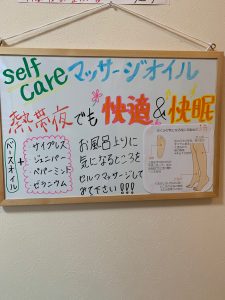 self care マッサージオイル
熱帯夜でも快適&快眠
ベースオイル
+
サイプレス
ジュニパー
ペパーミント
ゼラニウム
お風呂上りに
気になるところを
セルフマッサージして
みて下さい!!!